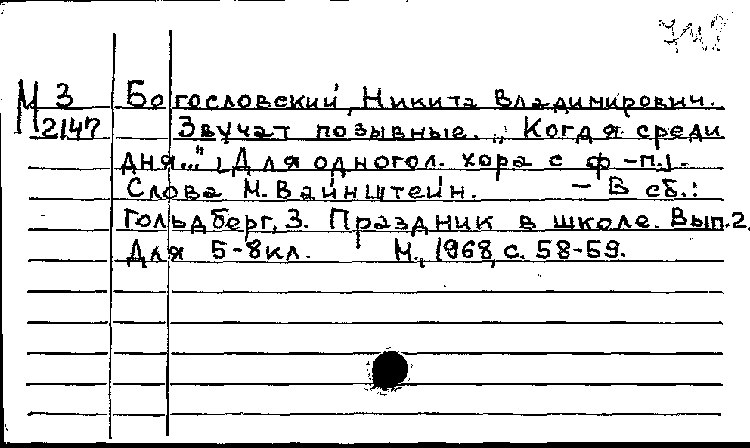 М 3 Богословский, Никита Владимирович.
2147 Звучат позывные. „Когда среди
дня..." [Для одногол. хора с ф-п.].
Слова М. Вайнштейн. – В сб.:
Гольдберг, З. Праздник в школе. Вып.2.
Для 5-8кл. М., 1968, с. 58-59.